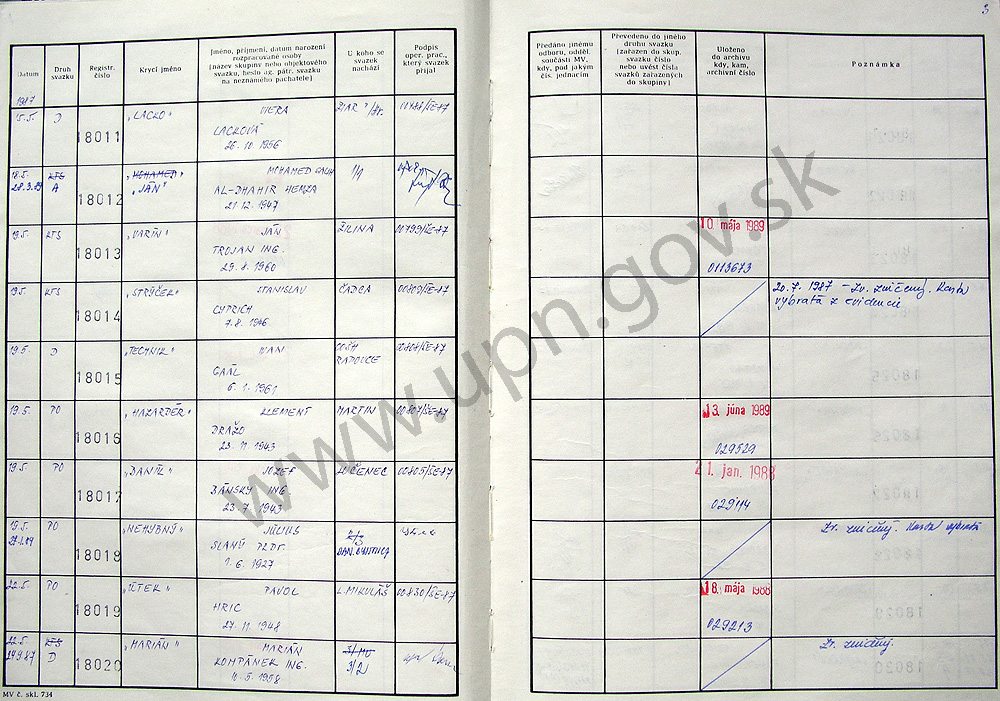 3
Datum
Druh svazku
Registr. číslo
Krycí jméno
Jméno, příjmení, datum narození
rozpracované osoby
(název skupiny nebo objektového
svazku, heslo ag. pátr. svazku
na neznámého pachatele)
U koho se
svazek
nachází
Podpis
oper. prac.,
který svazek
přijal
Předáno jinému
odboru, odděl.
součásti MV,
kdy, pod jakým
čís. jednacím
Převedeno do jiného
druhu svazku
(zařazen do skup.
svazku číslo
nebo uvést čísla
svazků zařazených
do skupiny)
Uloženo
do archivu
kdy, kam,
archivní číslo
Poznámka
1987
15.5. D 18011 "LACKO" VIERA
LACKOVÁ
26.10.1956
18.5. KTS 18012 "MOHAMED" MOHAMED 1/1
A "JÁN" AL-DHAHIR HEMZA
21.12.1947
19.5. KTS 18013 "VARÍN" JÁN ŽILINA 00799/ŠE-87 10. mája 1989
TROJAN ING.
29.8.1960 0113673
19.5. KTS 18014 "STRÝČEK" STANISLAV ČADCA 20.7.1987 - Zv. zničený. Karta
CYPRICH vybratá z evidencie
7.8.1946
19.5. D 18015 "TECHNIK" IVAN
GAÁL
6.1.1961
19.5. PO 18016 "HAZARDÉR" KLEMENT MARTIN 00807/ŠE-87 13. júna 1989
DRAŽO
23.11.1943 029529
19.5. PO 18017 "DANIEL" JOZEF LUČENEC 00805/ŠE-87 21. jan. 1988
BÁNSKY ING
23.7.1943 029114
19.5. PO 18018 "NEHYBNÝ" JÚLIUS Zv. zničený. Karta vybratá
SLANÝ BAN. BYSTRICA
1.6.1927
22.5. PO 18019 "ÚTEK" PAVOL L. MIKULÁŠ 00830/ŠE-87 18. mája 1988
HRIC
27.11.1948 029213
22.5. KTS 18020 "MARIÁN" MARIÁN Zv. zničený.
D KOMPÁNEK ING. 3/2
MV č. skl. 734
www.upn.gov.sk